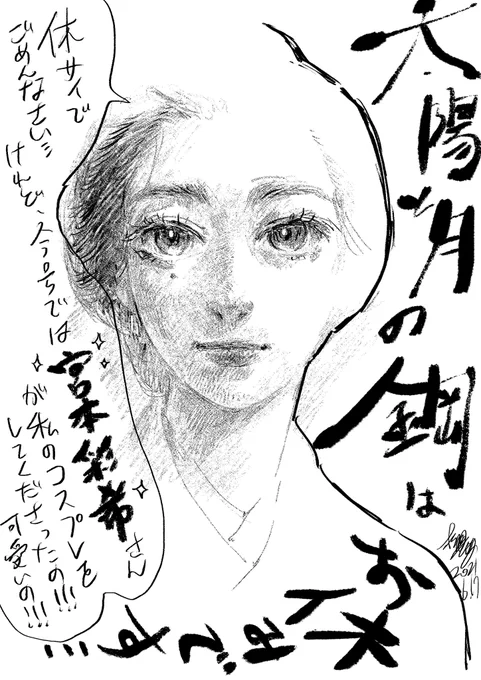 太陽と月の鋼は
お休みです…
2021
6.17
休サイで
ごめんなさい
けれど、今号では
宮本彩希さん
が私のコスプレを
してくださったの!!!
可愛いの!!!